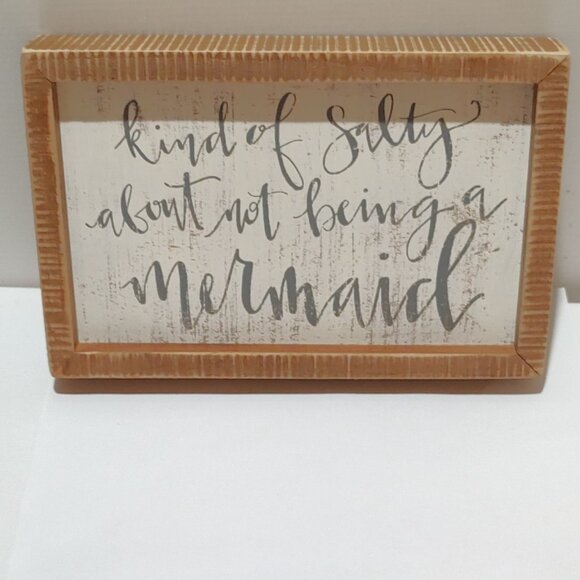 kind of salty
about not being a
mermaid